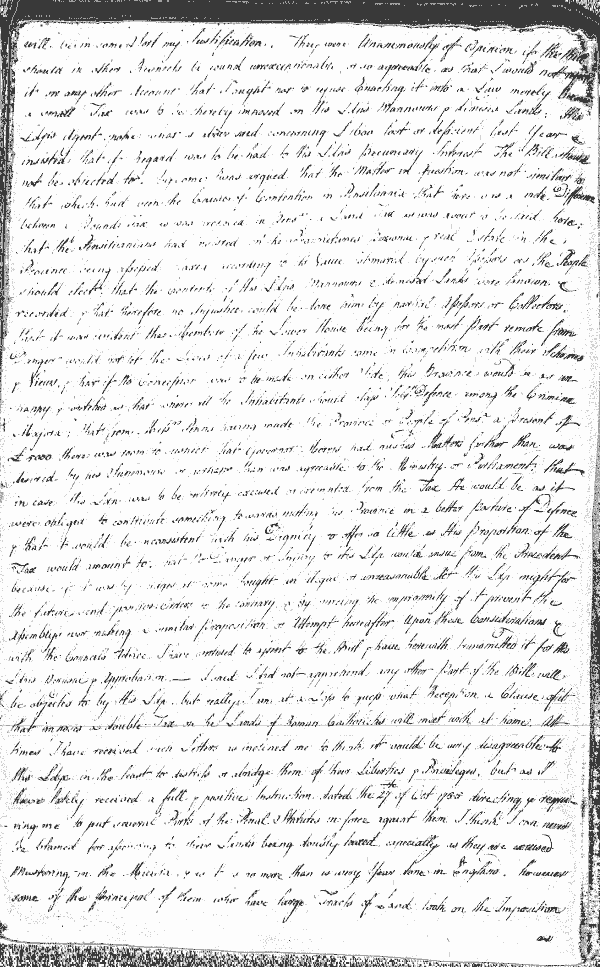 will be in some Sort my Justification. They were Unanimously of Opinion if the Bill
should in other Respects be found unexceptionable, or so agreeable as that I would not reject
it on any other Account that I ought not to refuse Enacting it into a Law merely because
a small Tax was to be thereby imposed on his Ldp's Mannours & demised Lands; His
Ldp's Agent made what is observed concerning £1600 lost or deficient last Year &
insisted that if regard was to be had to his Ldp's Pecuniary Interest The Bill should
not be objected to. By some it was argued that the Matter in Question was not similar to
that which had been the Cause of Contention in Pensilvania that there was a wide Difference
between a Pound Tax as was required in Pensa & a Land Tax as was about to be laid here;
that the Pensilvanians had insisted on the Proprietaries Personal & real Estate in the
Province being assessed & taxed according to its Value estimated by such Assessors as the People
should elect, that the contents of His Ldp's Mannours & demised Lands were known &
recorded, & that therefore no Injustice could be done him by partial Assessors or Collectors,
that it was evident the Members of the Lower House being for the most Part remote from
Danger would not let the Lives of a few Inhabitants come in Competition with their Schemes
& Views, & that if no Concession was to be made on either Side, this Province would be as un-
happy & wretched as that wherein the Inhabitants would class Self Defence among the Crimina
Majora; that from Messrs Penns having made the Province or People of Pensa a Present of
£5000 there was room to suspect that Governor Morris had pushed Matters further than was
desired by his Constituents or perhaps than was agreeable to the Ministry or Parliament; that
in case His Ldp was to be entirely excused or exempted from the Tax He would be as it
were obliged to contribute something towards putting his Province in a better Posture of Defence
& that it would be inconsistent with his Dignity to offer so little as His Proportion of the
Tax would amount to, that no Danger or Injury to His Ldp would ensue from the Precedent
because if it was by Judges at home thought an illegal or unreasonable Act His Ldp might for
the future send positive Orders to the contrary, & by urging the impropriety of it prevent the
Assemblys ever making a similar Proposition or Attempt hereafter. Upon these Considerations &
with the Councils Advice I have ventured to assent to the Bill & have herewith transmitted it for His
Ldp's Perusal & Approbation. — I said I did not apprehend any other Part of the Bill will
be objected to by His Ldp, but really I am at a Loss to guess what Reception a Clause of it
that imposes a double Tax on the Lands of Roman Catholicks will meet with at home. At
times I have received such Letters as inclined me to think it would be very disagreeable to
His Ldp in the least to distress or abridge them of their Liberties & Privileges, but as I
have lately received a full & positive Instruction dated the 27th of Octr 1755 directing & requir-
ing me to put several Parts of the Penal Statutes in force against them I think I can never
be blamed for assenting to their Lands being doubly taxed, especially as they are excused
Mustering in the Militia, & as it is no more than is every Year done in England. However
some of the Principal of them who have large Tracts of Land look on the Imposition
and